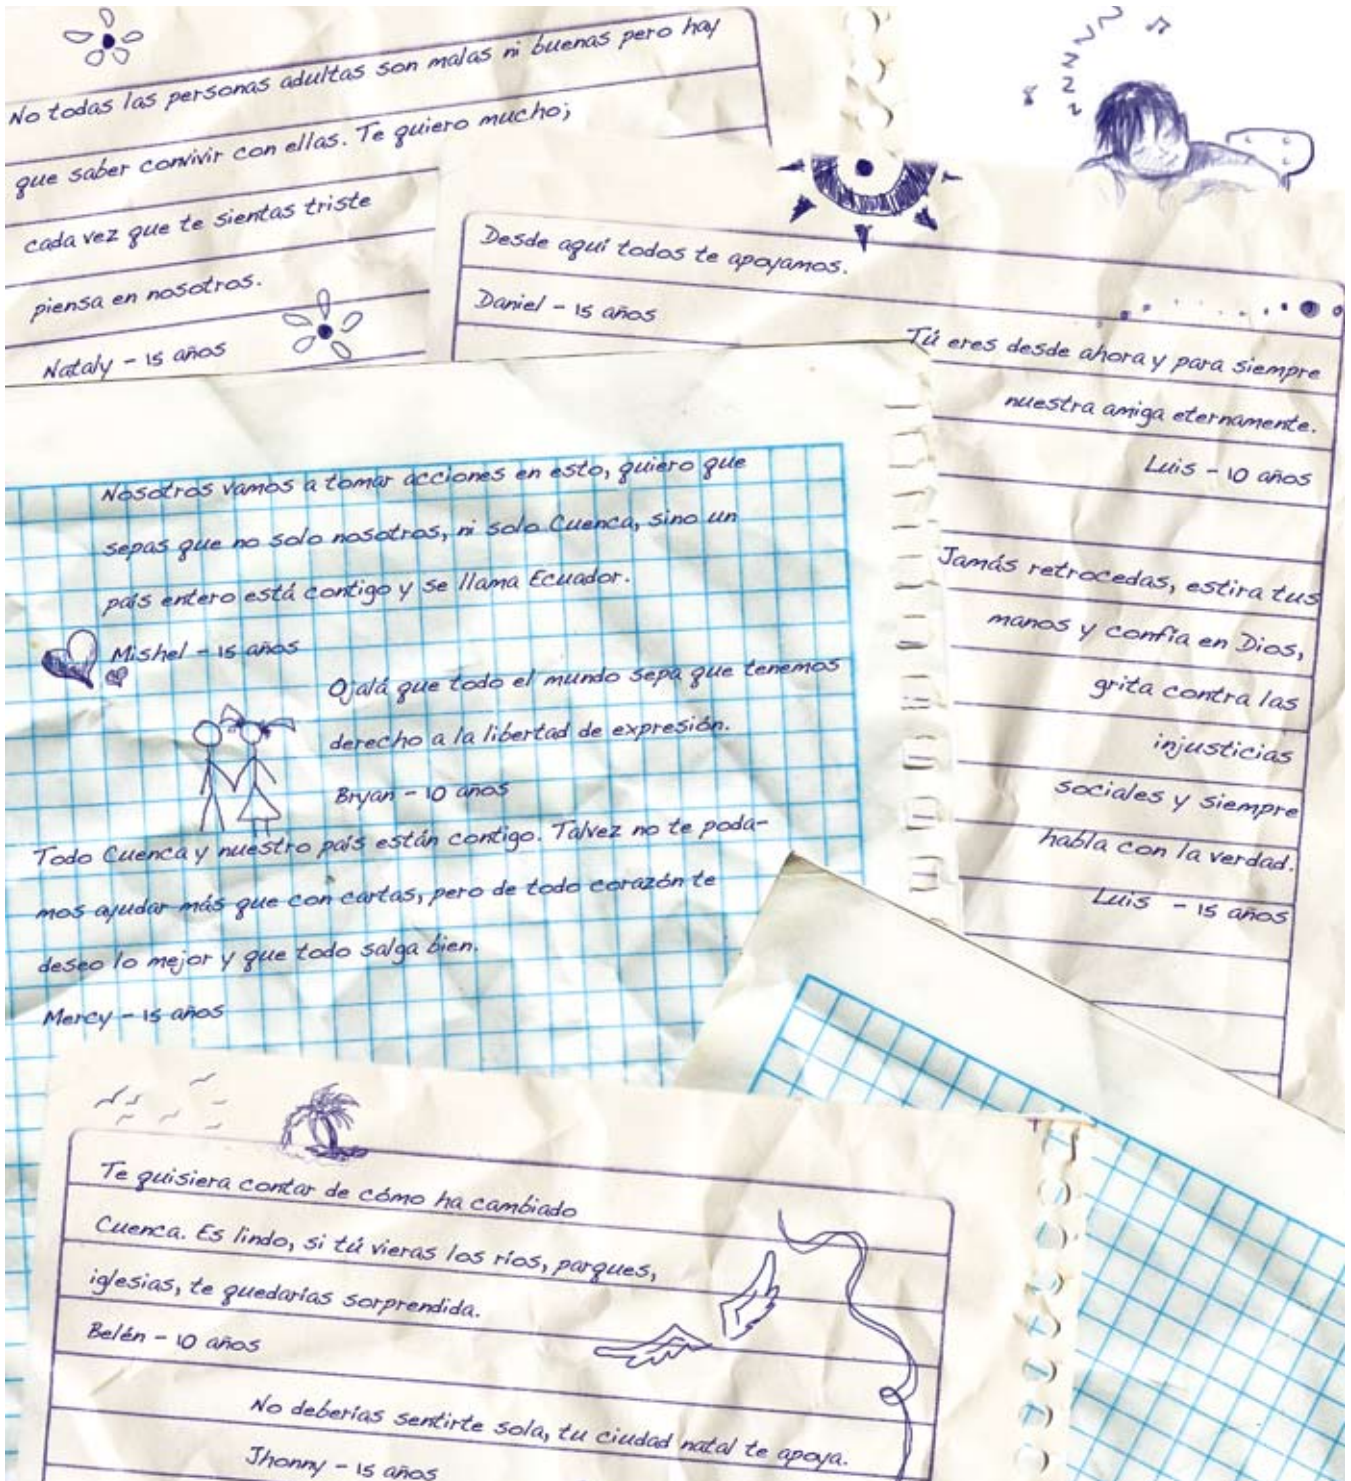 No todas las personas adultas son malas ni buenas pero hay
que saber convivir con ellas. Te quiero mucho;
cada vez que te sientas triste
piensa en nosotros.
Nataly - 15 años
Desde aquí todos te apoyamos.
Daniel - 15 años
Tú eres desde ahora y para siempre
nuestra amiga eternamente.
Luis - 10 años
Jamás retrocedas, estira tus
manos y confía en Dios,
grita contra las
injusticias
sociales y siempre
habla con la verdad.
Luis - 15 años
Nosotros vamos a tomar acciones en esto, quiero que
sepas que no solo nosotros, ni solo Cuenca, sino un
país entero está contigo y se llama Ecuador.
Mishel - 15 años
Ojalá que todo el mundo sepa que tenemos
derecho a la libertad de expresión.
Bryan - 10 años
Todo Cuenca y nuestro país están contigo. Talvez no te poda-
mos ayudar más que con cartas, pero de todo corazón te
deseo lo mejor y que todo salga bien.
Mercy - 15 años
Te quisiera contar de cómo ha cambiado
Cuenca. Es lindo, si tú vieras los ríos, parques,
iglesias, te quedarías sorprendida.
Belén - 10 años
No deberías sentirte sola, tu ciudad natal te apoya.
Jhonny - 15 años
z z z z z